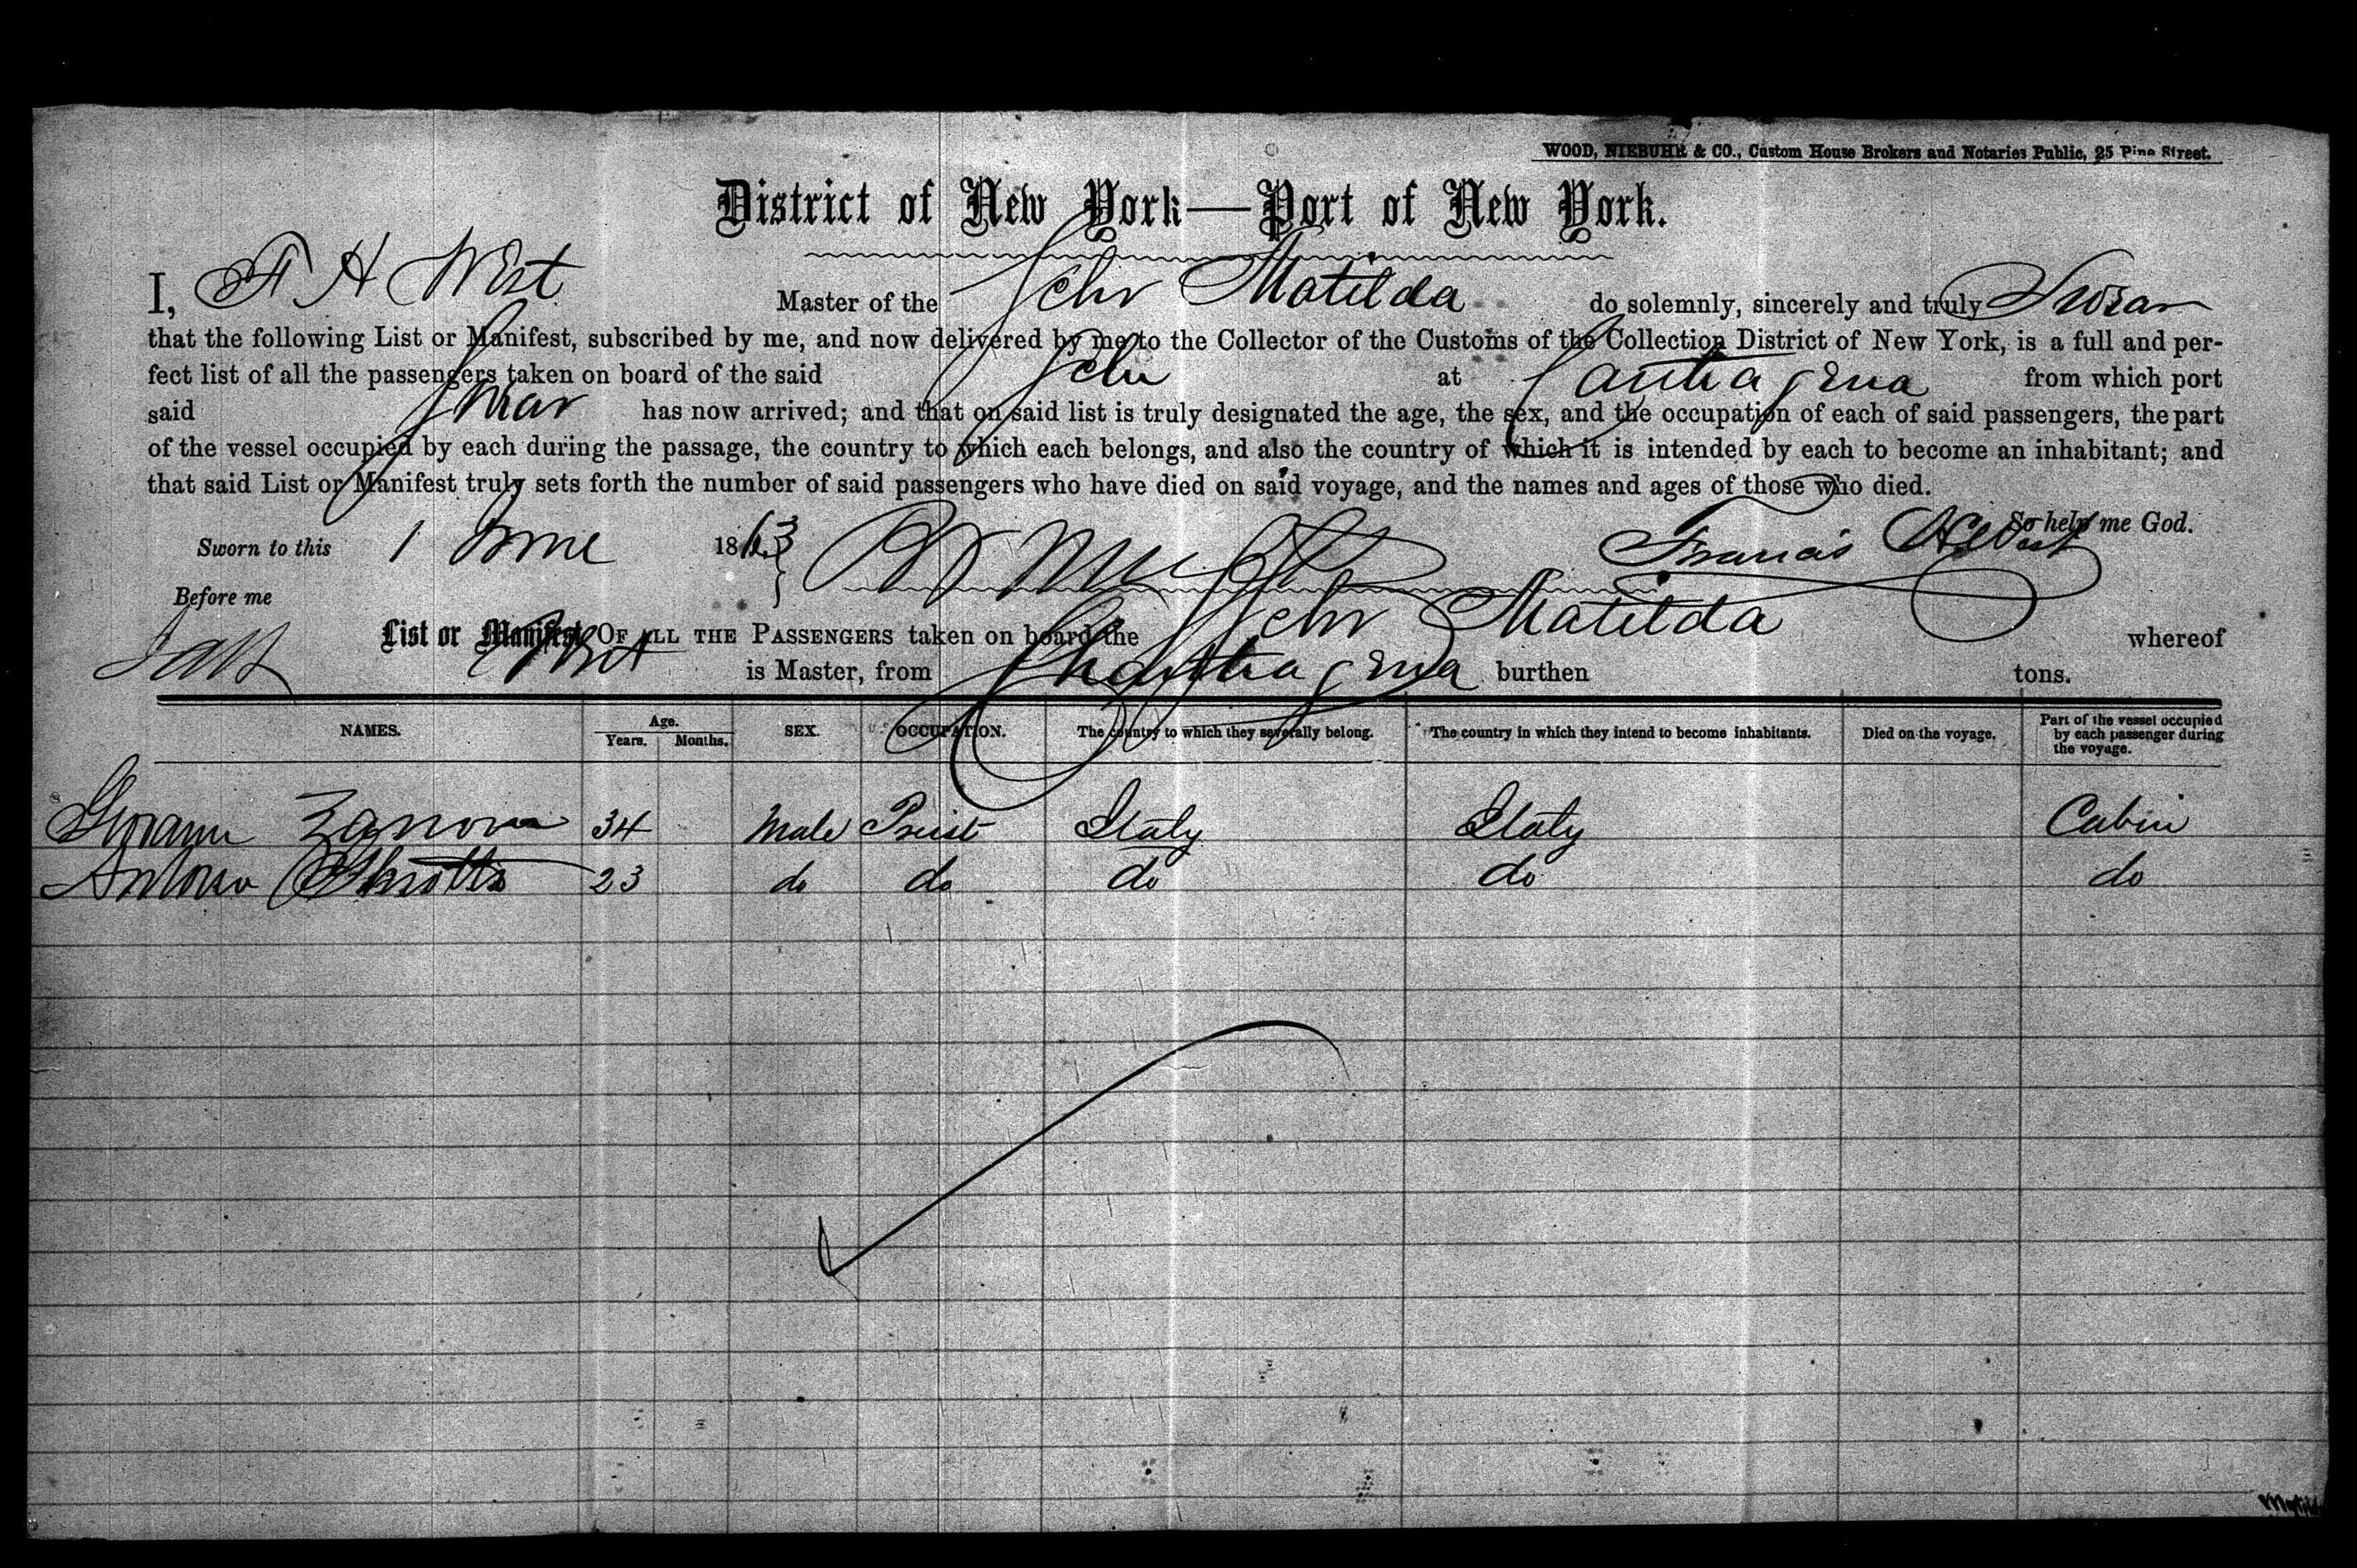 WOOD, NIEBUHR & CO., Custom House Brokers and Notaries Public, 25 Pine Street.
District of New York—Port of New York.
I, F H West Master of the Schr Matilda do solemnly, sincerely and truly Swear
that the following List or Manifest, subscribed by me, and now delivered by me to the Collector of the Customs of the Collection District of New York, is a full and per-
fect list of all the passengers taken on board of the said Schr at Carthagena from which port
said has now arrived; and that on said list is truly designated the age, the sex, and the occupation of each of said passengers, the part
of the vessel occupied by each during the passage, the country to which each belongs, and also the country of which it is intended by each to become an inhabitant; and
that said List or Manifest truly sets forth the number of said passengers who have died on said voyage, and the names and ages of those who died.
So help me God.
Sworn to this 1 June 1863 Francis H West
Before me
List or Manifest OF ALL THE PASSENGERS taken on board the Schr Matilda whereof
West is Master, from Charthagena burthen tons.
NAMES. Age. Years. Months. SEX. OCCUPATION. The country to which they severally belong. The country in which they intend to become inhabitants. Died on the voyage. Part of the vessel occupied by each passenger during the voyage.
34 Male Priest Italy Italy Cabin
Antonio 23 do do do do do